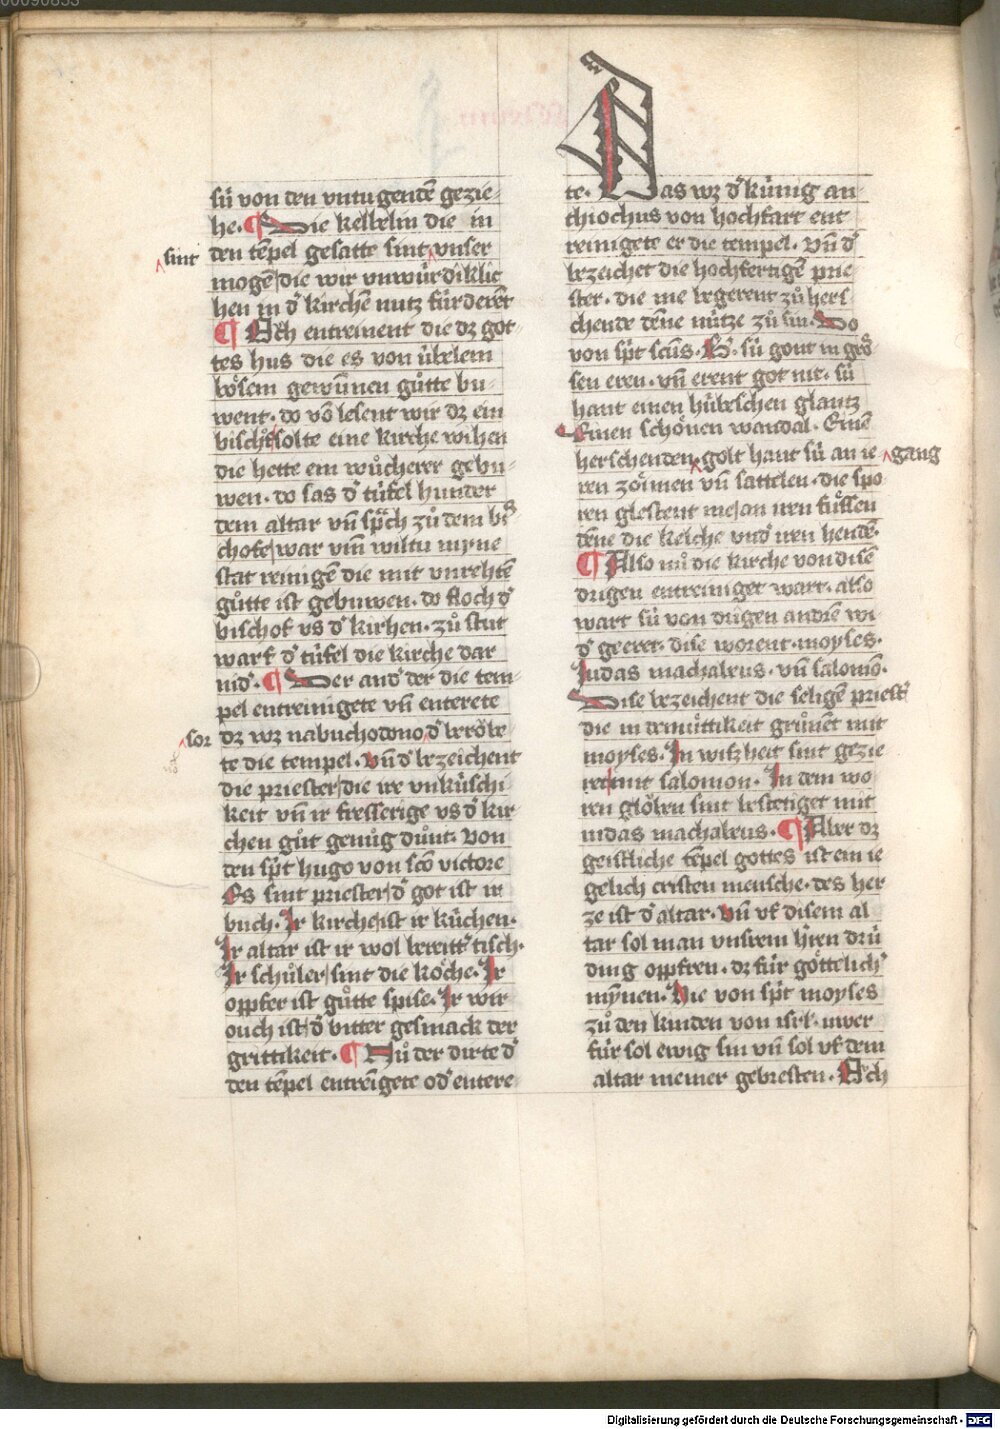 sú von den vntugendē gezie-
he. ¶ Die kelkelin die in
sint den tēpel gesatte sint vnser
mogē die wir vnwúrdiklic
hen in dˀ kirchē nutz fúrderēt
¶ Och entreinent die dz got-
tes hus die es von úbelem
bo̊sem gewūnen gu̍tte bu-
went. do vō lesent wir dz ein
bischof solte eine kirche wihen
die hette ein wůcherer gebu-
wen. do sas dˀ túfel hunder
dem altar vn̄ sp̄ch zů dem bi
schofe war vm̄ wiltu myne
stat reinigē die mit vnrehtē
gůtte ist gebuwen. do floch dˀ
bischof vs dˀ kirhen. zů stut
warf dˀ túfel die kirche dar
nidˀ. ¶ Der andˀ der die tem-
pel entreinigete vn̄ enterete
sor dz wz nabuchodono dˀ berőbe-
te die tempel. vn̄ dˀ bezeichent
die priester die ire vnkúschi-
keit vn̄ ir fresserige vs dˀ kir-
chen gůt genůg důnt. Von
den sp̄t hugo von sc̄o victore
Es sint priester dˀ got ist ir
buch. Ir kirche ist ir kúchen.
Ir altar ist ir wol bereittˀ tisch.
Ir schůler sint die kőche. Ir
oppfer ist gůtte spise. Ir wir
ouch ist dˀ bitter gesmack der
grittikeit. ¶ Nů der dirte dˀ
den tēpel entrēigete odˀ entere-
te. Das wz dˀ kúnig an-
thiochus von hochfart ent
reinigete er die tempel. vn̄ dˀ
bezeichet die hochfertigē prie
ster. die me begerent zů hers
chende dēne nútze zů sin. Do
von sp̄t sc̄us. B. sú gont in gro̍
sen eren. vn̄ erent got nit. sú
hant einen húbschen glantz
Einen schőnen wandal. Einē
herschenden golt hant sú an ie gang
ren zőimen vn̄ sattelen. die spo
ren glestent me an iren fússen
dēne die kelche vndˀ iren hendē.
¶ Also nů die kirche von disē
drigen entreiniget wart. also
wart sú von drigen andrē wi
dˀ geeret. dise worent. moyses.
Iudas machabeus. vn̄ salomō.
Dise bezeichent die seligē priestˀ
die in demůttikeit grůnēt mit
moyses. In wisheit sint gezie
ret mit salomon. In dem wo
ren glőben sint bestetiget mit
iudas machabeus. ¶ Aber dz
geistliche tēpel gottes ist ein ie
gelich cristen mensche. des her
ze ist dˀ altar. vn̄ vf disem al
tar sol man vnsrem h̄ren drú
ding oppfren. dz fúr gőttelichˀ
mynnen. Die von sp̄t moyses
zů den kinden von isrl. uwer
fúr sol ewig sin vn̄ sol vf dem
altar niemer gebresten. Och